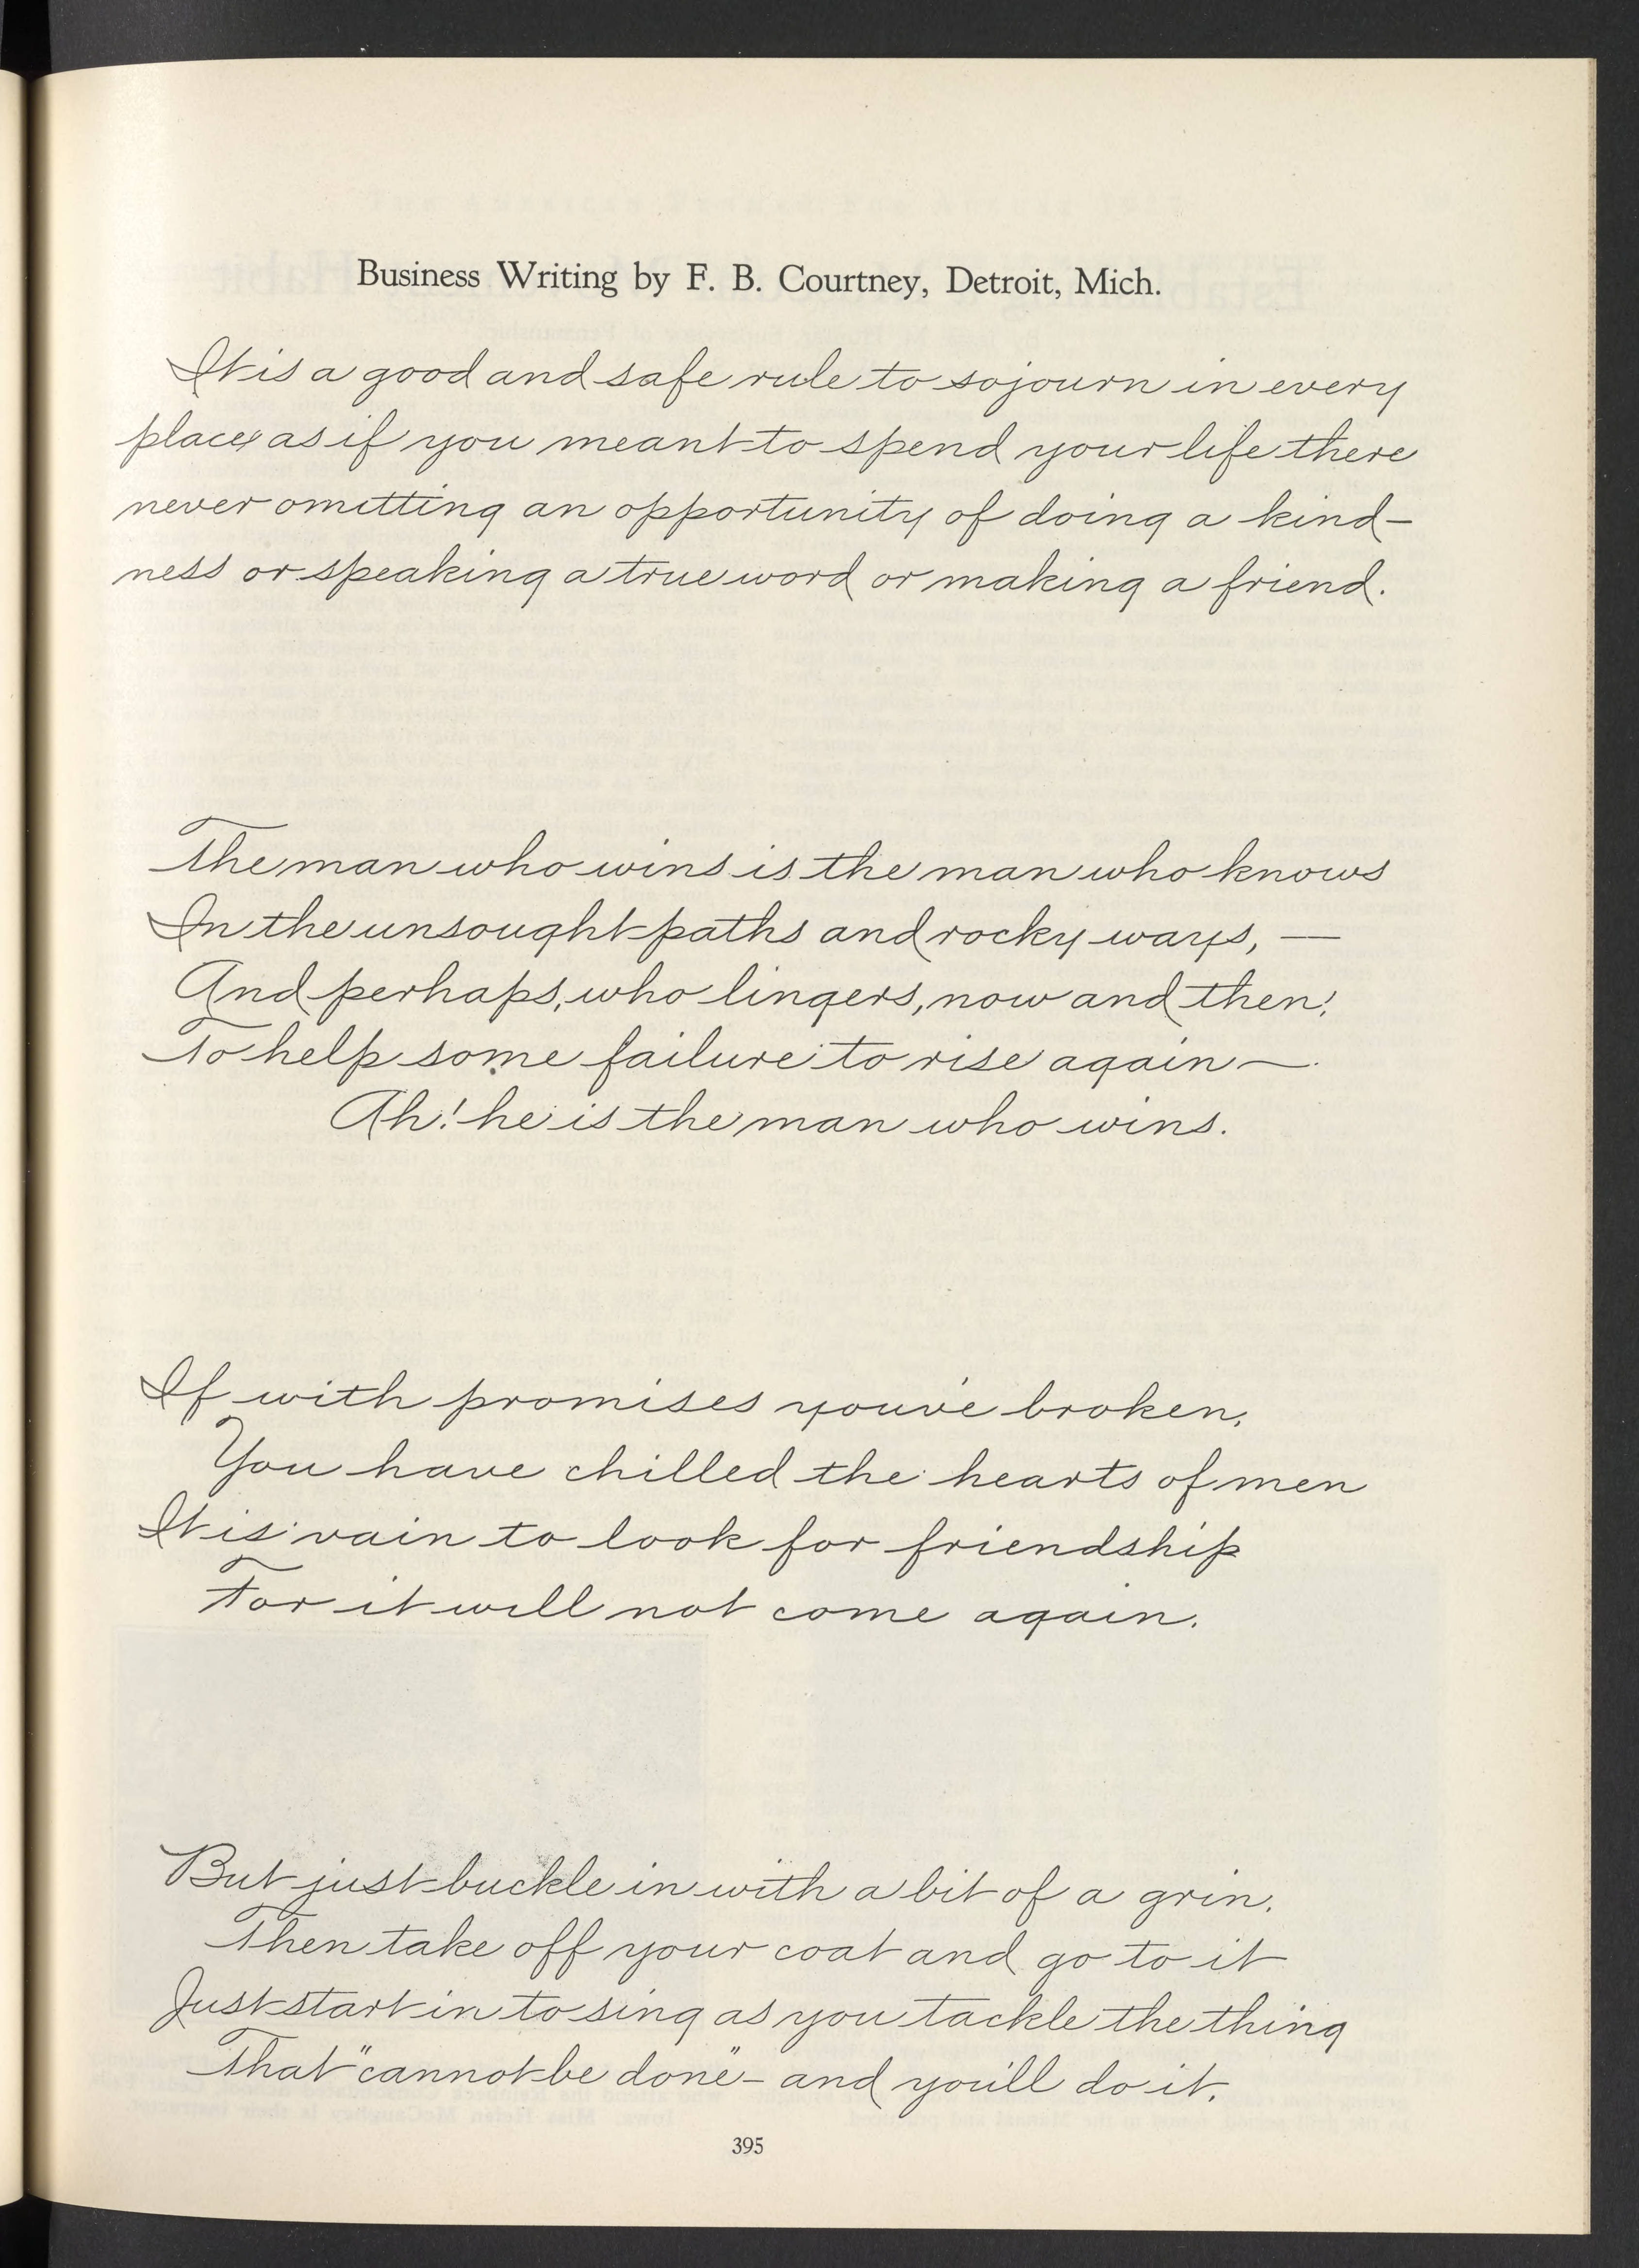 Business Writing by F. B. Courtney, Detroit, Mich.
It is a good and safe rule to sojourn in every
place as if you meant to spend your life there
never omitting an opportunity of doing a kind-
ness or speaking a true word or making a friend.
The man who wins is the man who knows
In the unsought paths and rocky ways, —
And perhaps, who lingers, now and then,
To help some failure to rise again —
Ah! he is the man who wins.
If with promises you've broken,
You have chilled the hearts of men
It is vain to look for friendship
For it will not come again.
But just buckle in with a bit of a grin,
Then take off your coat and go to it
Just start in to sing as you tackle the thing
That "cannot be done" - and you'll do it.
395